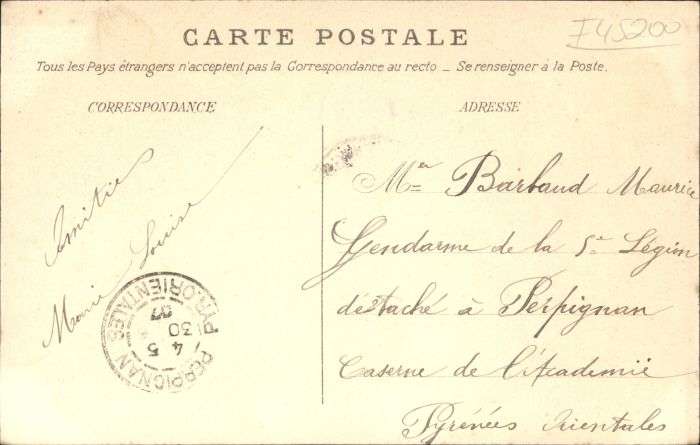 CARTE POSTALE
F45200
Tous les Pays étrangers n'acceptent pas la Correspondance au recto _ Se renseigner à la Poste.
CORRESPONDANCE
ADRESSE
Amitiés
Marie Louise
Barbaud Maurice
Gendarme de la 5e Légion
détaché à Perpignan
Caserne de l'Académie
Pyrénées Orientales
PERPIGNAN
PYR. ORIENTALES
4 5
30
07